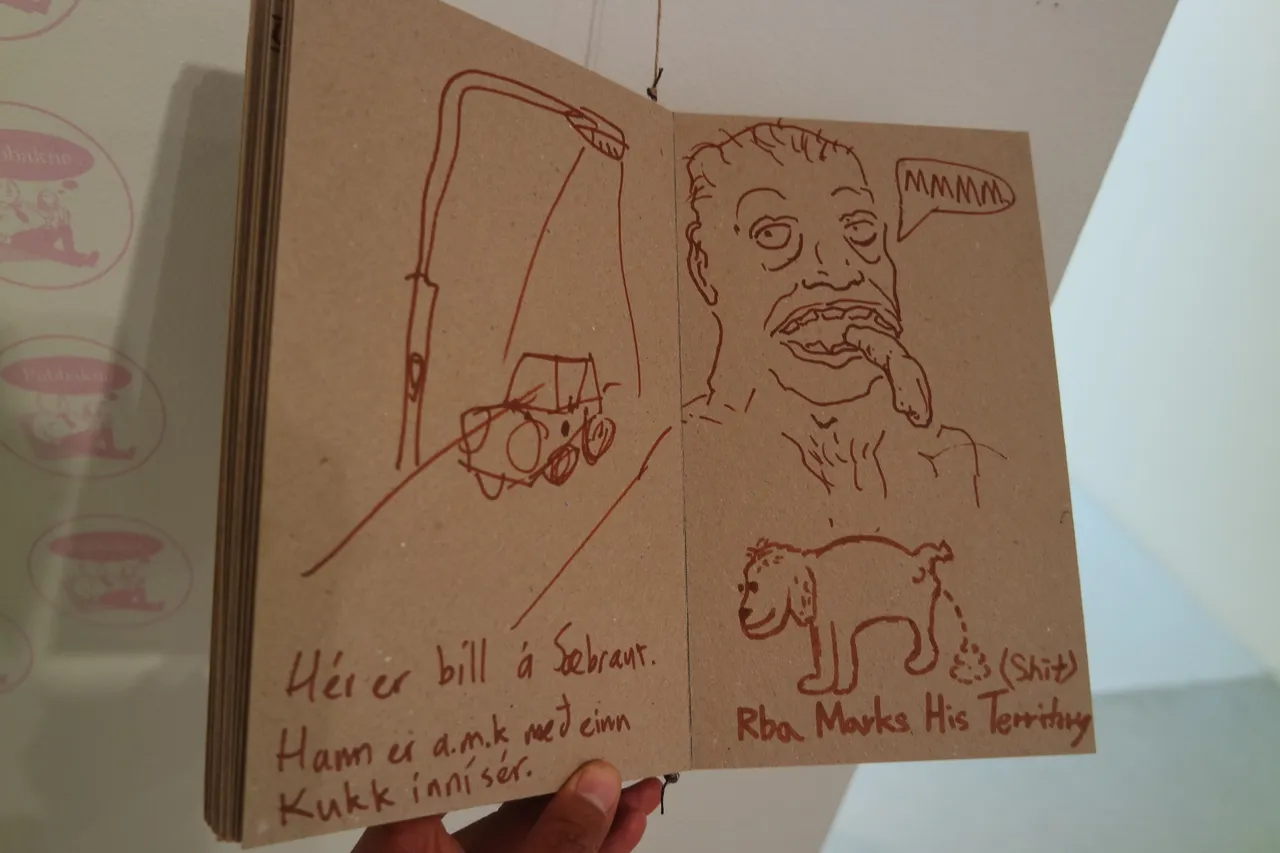 Hér er bíll á Sæbraut.
Hann er a.m.k með einn
Kukk inní sér.
MMMM.
(Shit)
Rba Marks His Territory